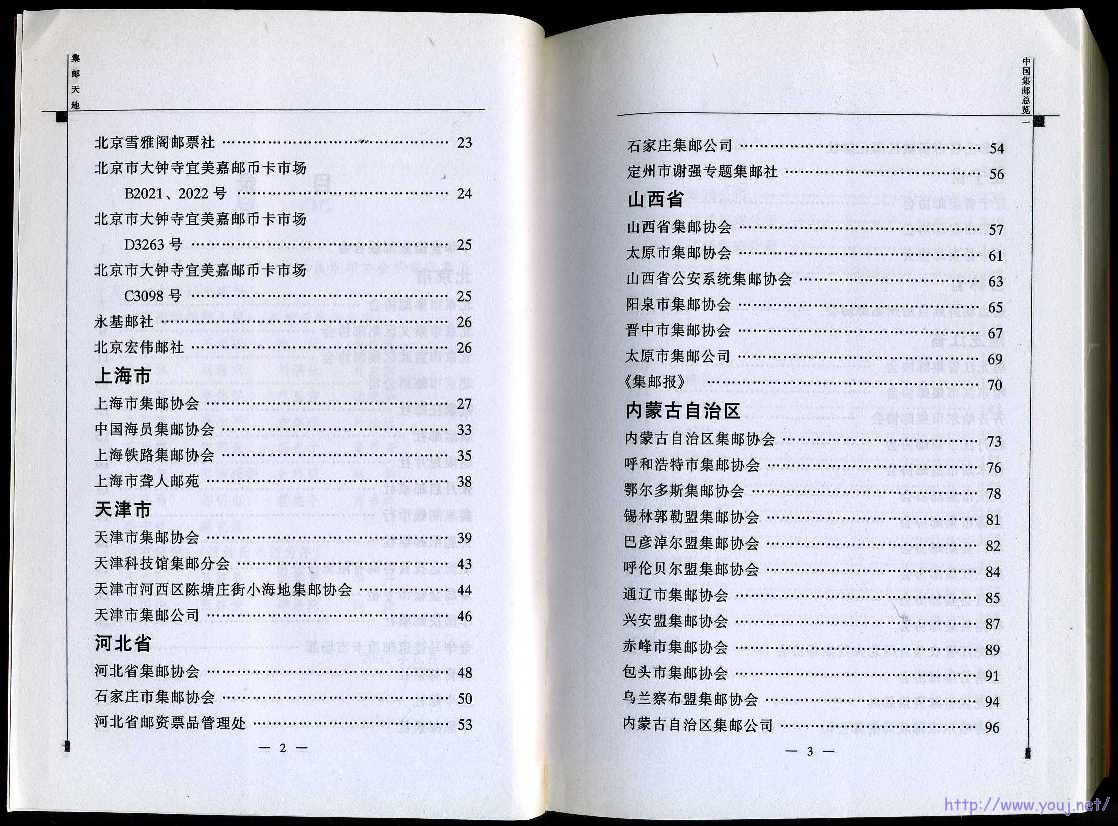 集邮天地
北京雪雅阁邮票社 …… 23
北京市大钟寺宜美嘉邮币卡市场
B2021、2022 号 …… 24
北京市大钟寺宜美嘉邮币卡市场
D3263 号 …… 25
北京市大钟寺宜美嘉邮币卡市场
C3098 号 …… 25
永基邮社 …… 26
北京宏伟邮社 …… 26
上海市
上海市集邮协会 …… 27
中国海员集邮协会 …… 33
上海铁路集邮协会 …… 35
上海市聋人邮苑 …… 38
天津市
天津市集邮协会 …… 39
天津科技馆集邮分会 …… 43
天津市河西区陈塘庄街小海地集邮协会 …… 44
天津市集邮公司 …… 46
河北省
河北省集邮协会 …… 48
石家庄市集邮协会 …… 50
河北省邮资票品管理处 …… 53
— 2 —
中国集邮总览一
石家庄集邮公司 …… 54
定州市谢强专题集邮社 …… 56
山西省
山西省集邮协会 …… 57
太原市集邮协会 …… 61
山西省公安系统集邮协会 …… 63
阳泉市集邮协会 …… 65
晋中市集邮协会 …… 67
太原市集邮公司 …… 69
《集邮报》 …… 70
内蒙古自治区
内蒙古自治区集邮协会 …… 73
呼和浩特市集邮协会 …… 76
鄂尔多斯集邮协会 …… 78
锡林郭勒盟集邮协会 …… 81
巴彦淖尔盟集邮协会 …… 82
呼伦贝尔盟集邮协会 …… 84
通辽市集邮协会 …… 85
兴安盟集邮协会 …… 87
赤峰市集邮协会 …… 89
包头市集邮协会 …… 91
乌兰察布盟集邮协会 …… 94
内蒙古自治区集邮公司 …… 96
— 3 —
http://www.youj.net/